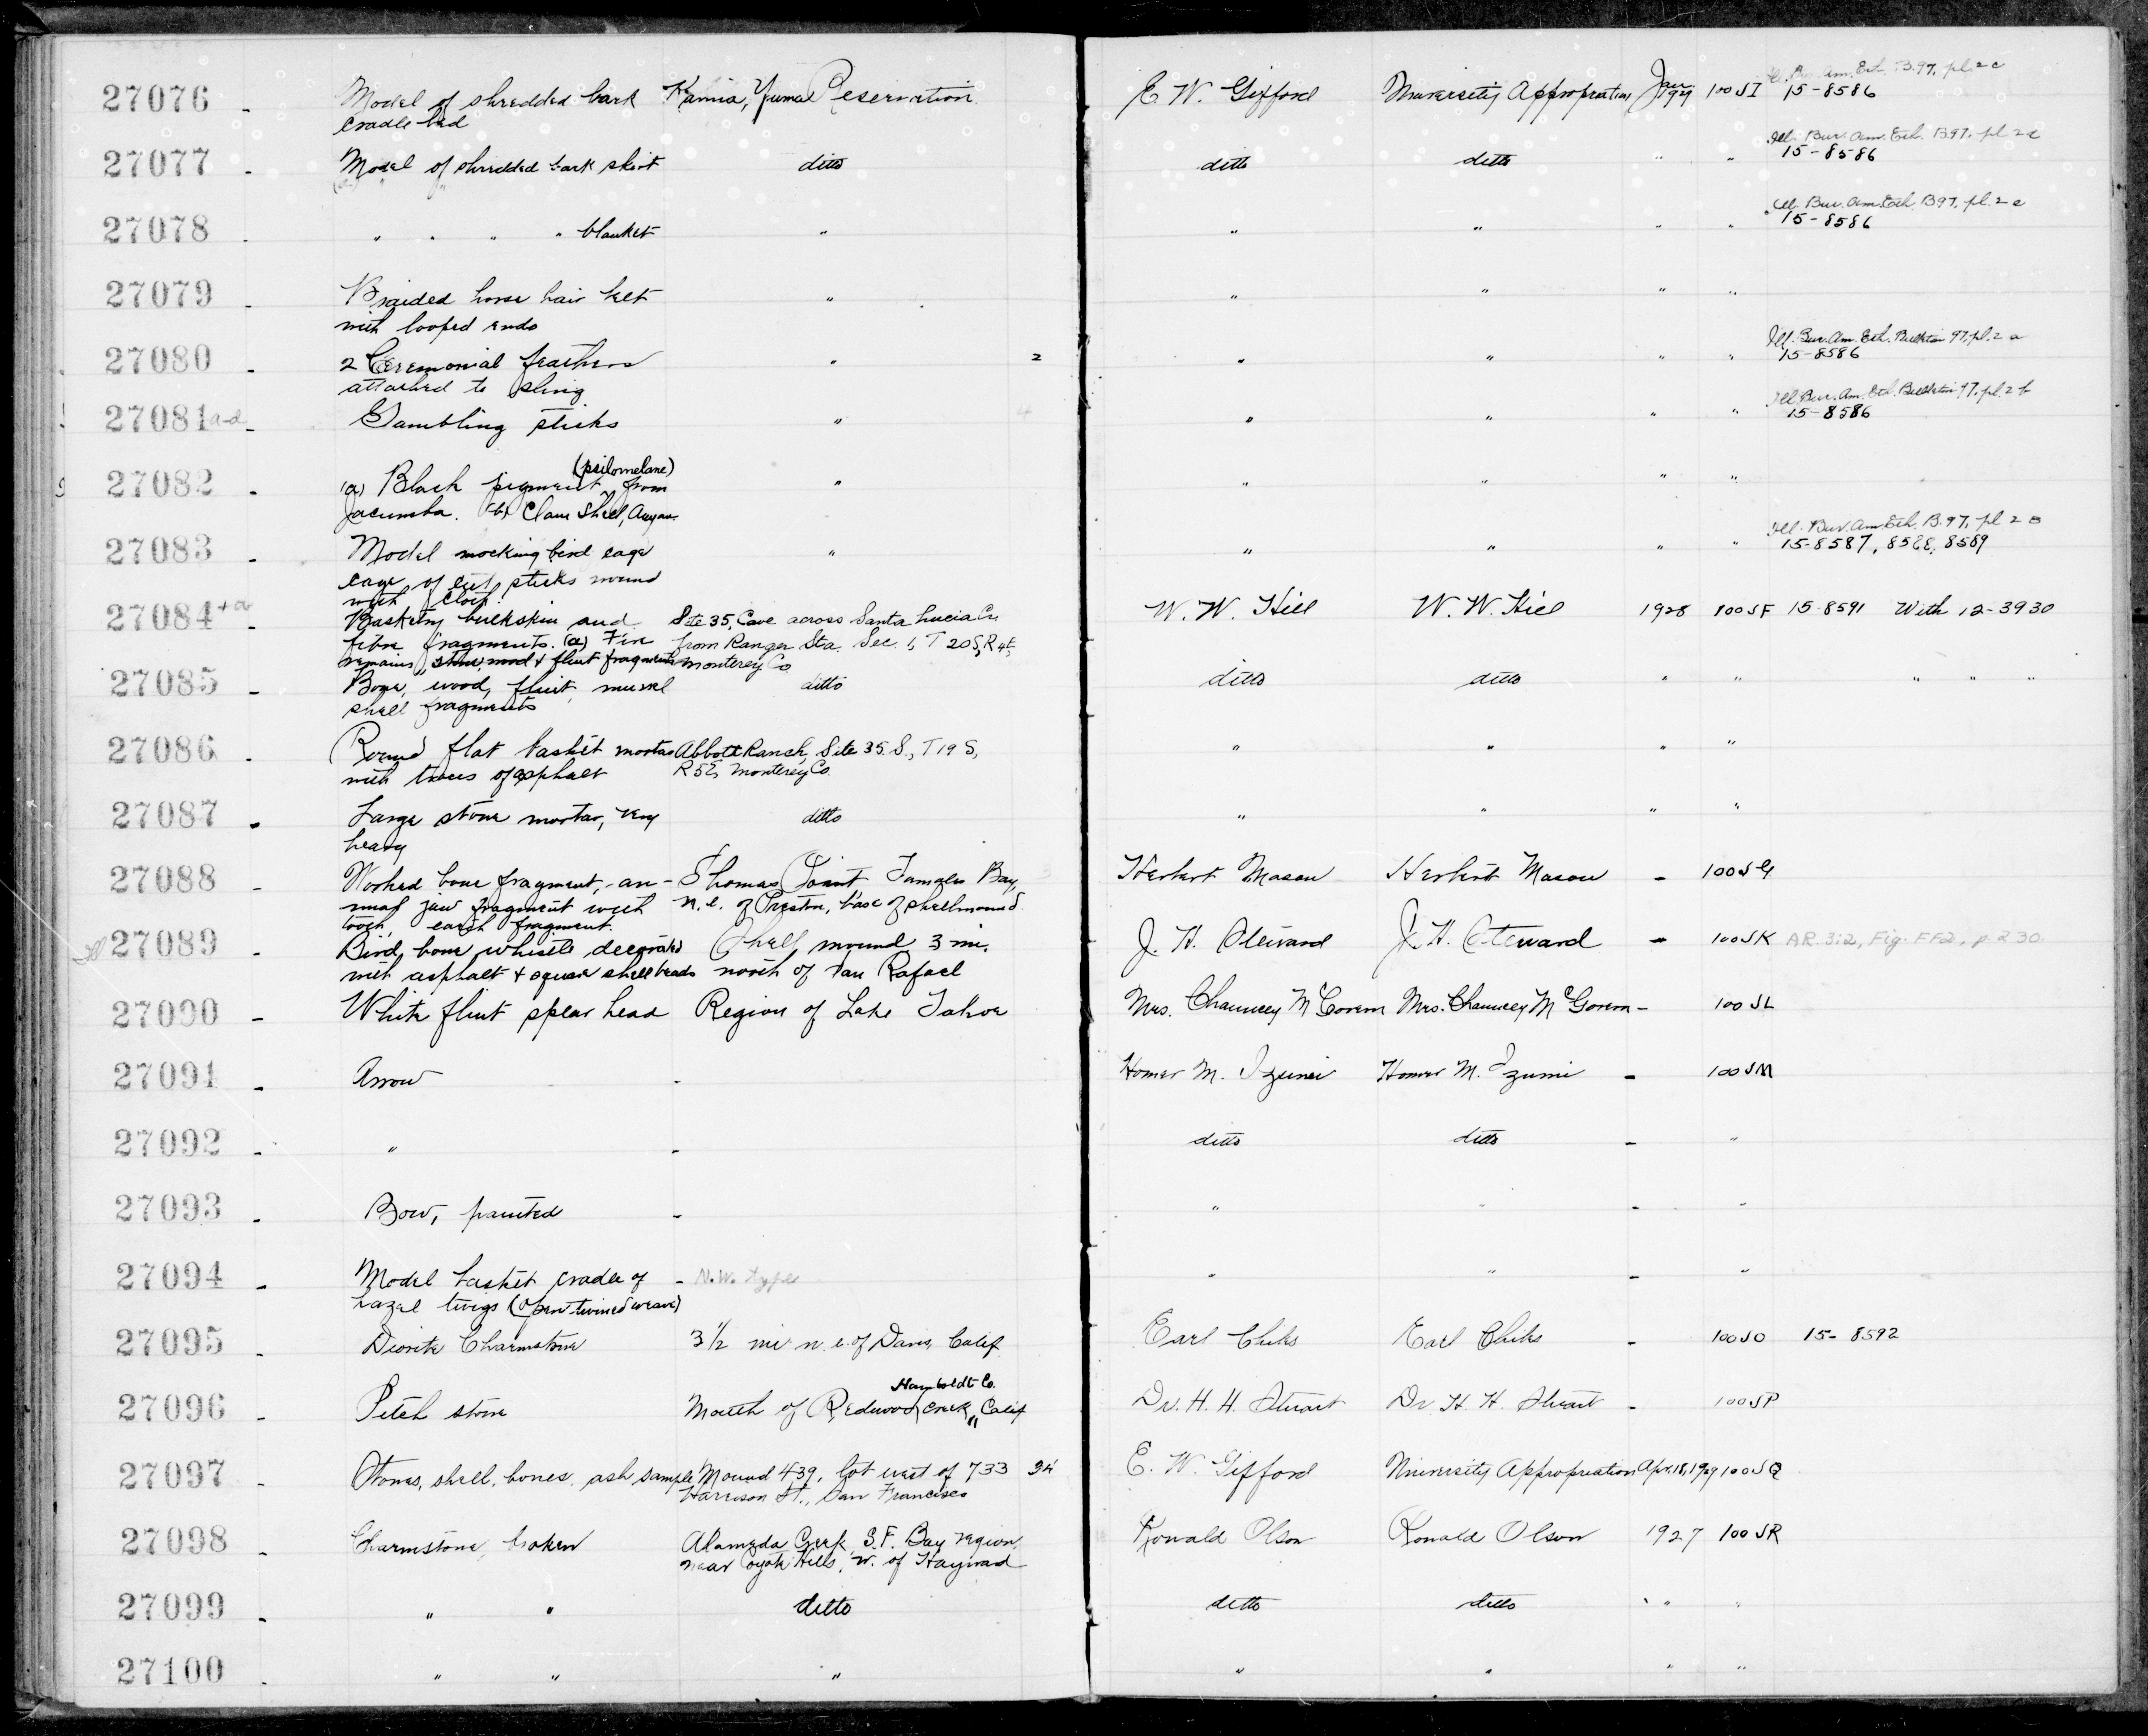 27076 - Model of shredded bark Kamia, Yuma Reservation E. W. Gifford University Appropriation Jan. 1929 100 SI Ill. Bur. Am. Eth. B.97, pl. 2 c
cradle bed 15-8586
27077 - Model of shredded bark skirt ditto ditto ditto " " Ill. Bur. Am. Eth. B97, pl 2 d
15-8586
27078 - " " " " blanket " " " " " Ill. Bur. Am. Eth. B97, pl. 2 e
15-8586
27079 - Braided horse hair belt " " " " "
with looped ends
27080 - 2 Ceremonial feathers " 2 " " " " Ill. Bur. Am. Eth. Bulletin 97, pl. 2 a
attached to sling 15-8586
27081 a-d - Gambling sticks " 4 " " " " Ill. Bur. Am. Eth. Bulletin 97, pl. 2 f
15-8586
27082 - (a) Black pigment (psilomelane) from " " " " "
Jacumba. (b) Clam Shell,
27083 - Model mocking bird cage " " " " " Ill. Bur. Am. Eth. B.97, pl 2 B
cage of sticks wound 15-8587, 8588, 8589
with cloth
27084 + a - Basketry buckskin and Site 35, Cave across Santa Lucia Cr. W. W. Hill W. W. Hill 1928 100 SF 15-8591 With 12-3930
fibre fragments. (a) Fire from Ranger Sta. Sec. 1, T 20 S, R 4 E,
remains, stone, wood & flint fragments Monterey Co
27085 - Bone, wood, flint, mussel ditto ditto ditto " " " " "
shell fragments
27086 - Round flat basket mortar Abbott Ranch, Site 35. S., T 19 S, " " " "
with traces of asphalt R 5 E, Monterey Co.
27087 - Large stone mortar, very ditto " " " "
heavy
27088 - Worked bone fragment, an- Thomas Point Tomales Bay, Herbert Mason Herbert Mason - 100 SG
imal jaw fragment with n. e. of Preston, base of shellmound
tooth, earth fragment.
27089 - Bird bone whistle decorated Shell mound 3 mi. J. H. Steward J. H. Steward - 100 SK AR. 3:2, Fig. FF2, p. 230.
with asphalt & square shell beads north of San Rafael
27090 - White flint spear head Region of Lake Tahoe Mrs. Chauncey McGovern Mrs. Chauncey McGovern - 100 SL
27091 - Arrow - Homer M. Izumi Homer M. Izumi - 100 SM
27092 - " - ditto ditto - "
27093 - Bow, painted - " " - "
27094 - Model basket cradle of - N.W. type " " - "
hazel twigs (open twined weave)
27095 - Diorite Charmstone 3 1/2 mi. n. e. of Davis, Calif. Earl Chiles Earl Chiles - 100 SO 15-8592
27096 - Pitch stone Mouth of Redwood Creek, Humboldt Co. Calif Dr. H. H. Stuart Dr. H. H. Stuart - 100 SP
27097 - Stones, shell, bones, ash sample Mound 439, lot west of 733 E. W. Gifford University Appropriation Apr. 18, 1929 100 SQ
Harrison St., San Francisco
27098 - Charmstone, broken Alameda Creek, S.F. Bay region, Ronald Olson Ronald Olson 1927 100 SR
near Coyote Hills, w. of Hayward
27099 - " " ditto ditto ditto " "
27100 - " " " " " " "